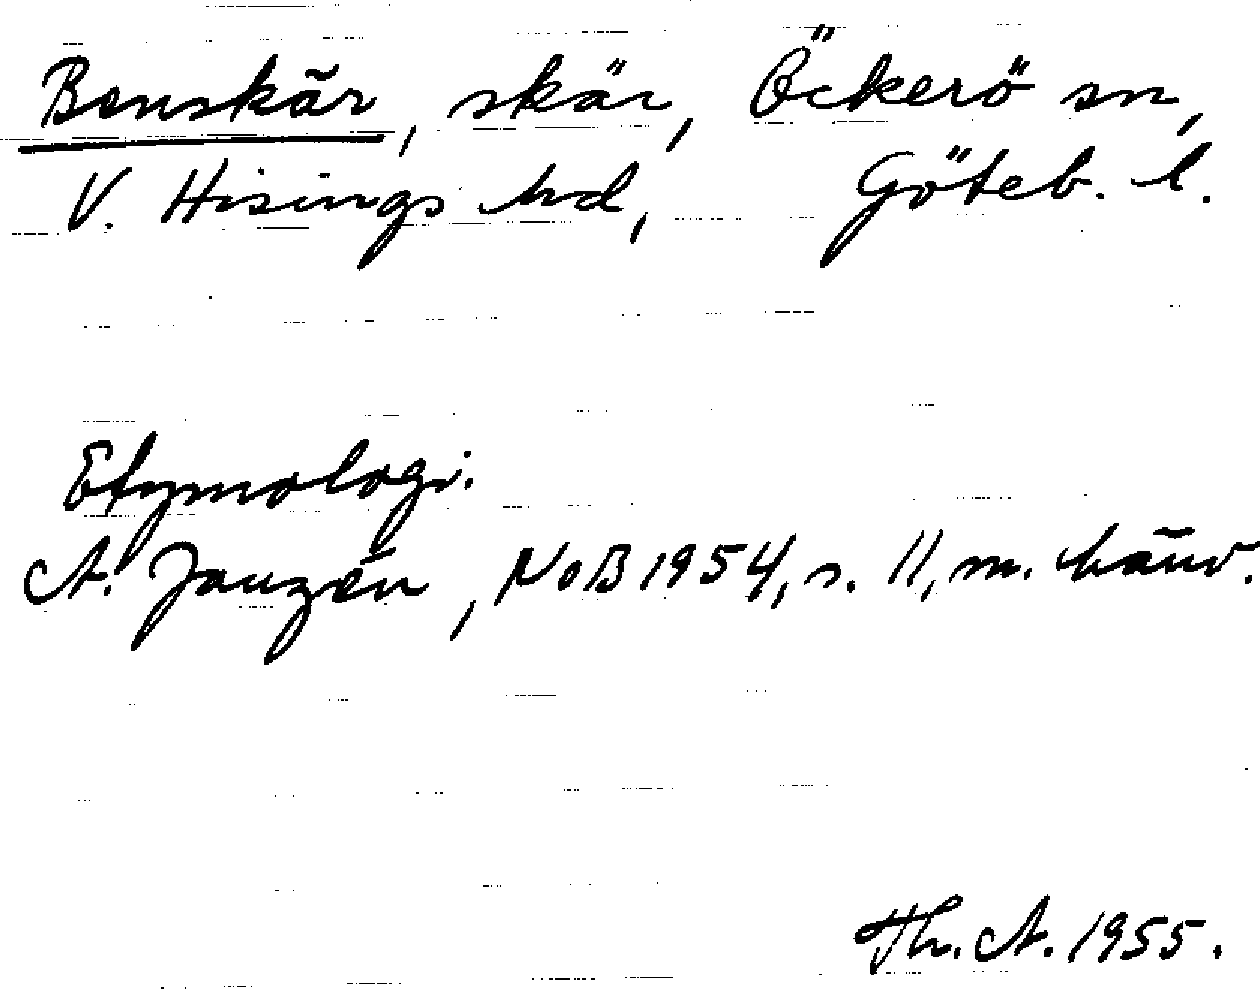 Bonskär, skär, Öckerö sn,
V. Hisings hd, Göteb. l.
Etymologi.
A. Janzén, NoB 1954, s. 11, m. hänv.
Th. A. 1955.